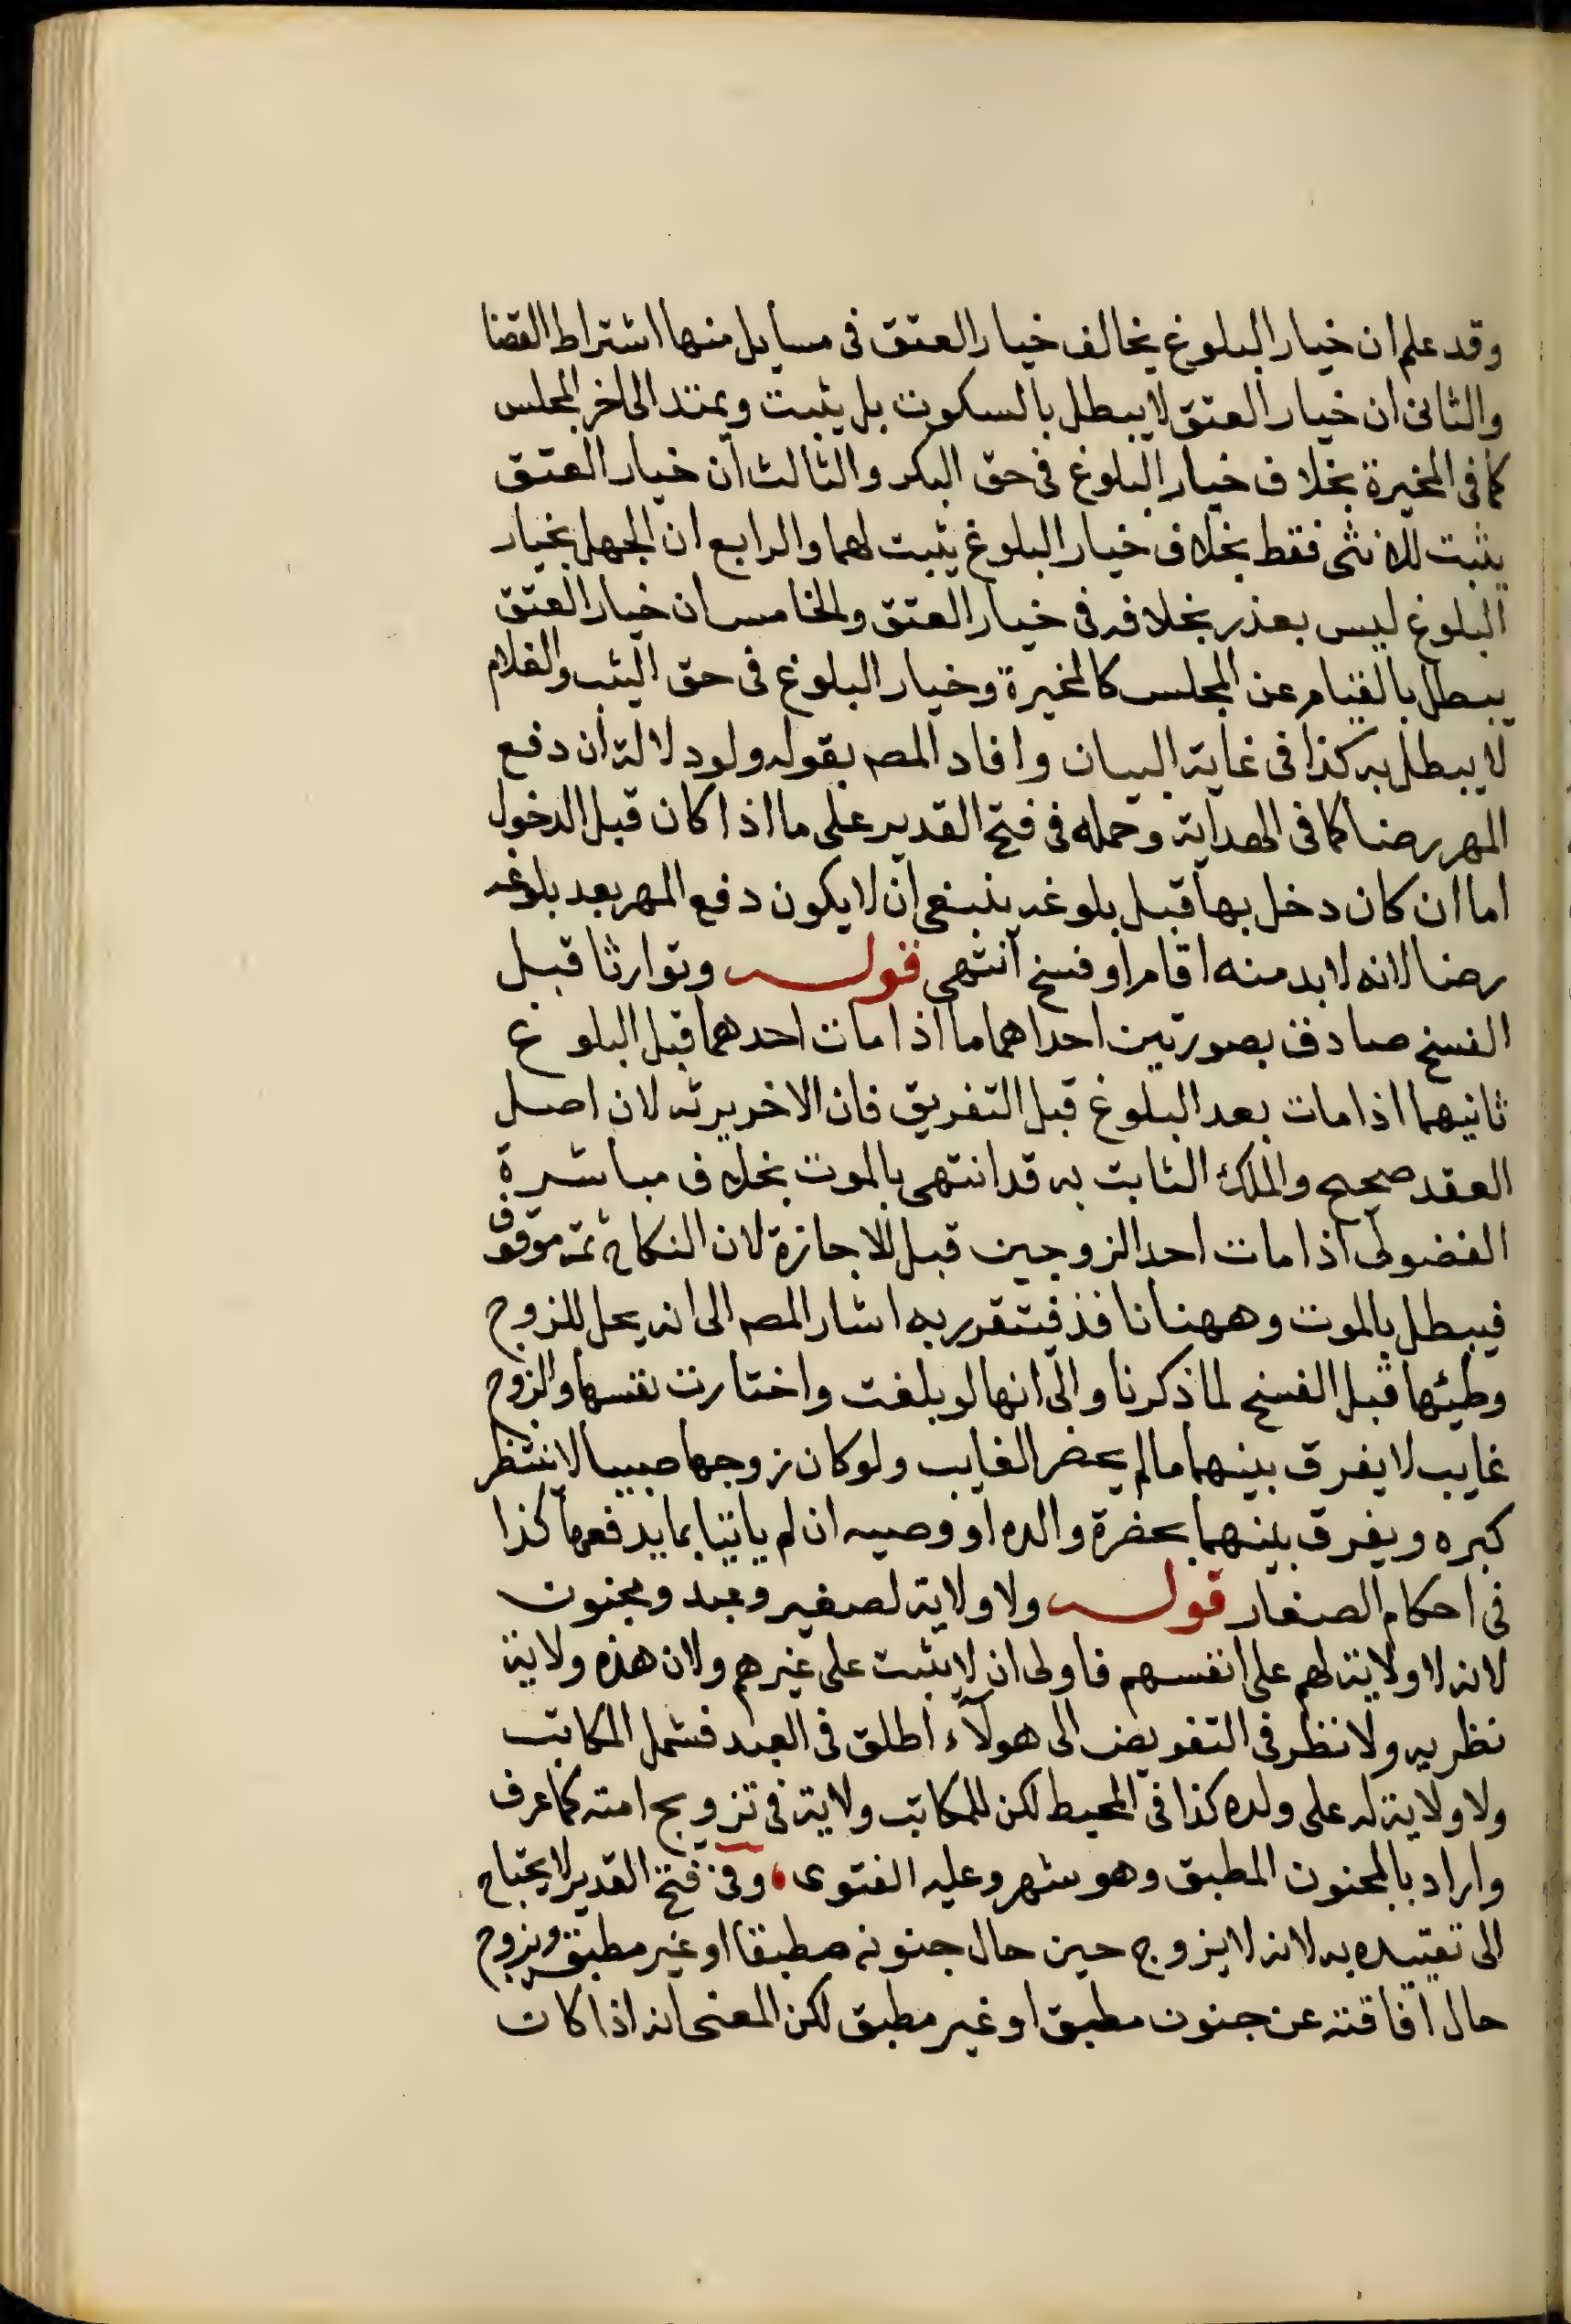 وقد علم ان خيار البلوغ يخالف خيار العتق فى مسايل منها اشتراط القضا
والثانى ان خيار العتق لا يبطل بالسكوت بل يثبت ويمتد الى اخر المجلس
كما فى المخيرة بخلاف خيار البلوغ فى حق البكر والثالث ان خيار العتق
يثبت للانثى فقط بخلاف خيار البلوغ يثبت لهما والرابع ان الجهل بخيار
البلوغ ليس بعذر بخلافه فى خيار العتق والخامس ان خيار العتق
يبطل بالقيام عن المجلس كالمخيرة وخيار البلوغ فى حق الثيب والغلام
لا يبطل به كذا فى غاية البيان وافاد المصه بقوله ولو دلالة ان دفع
المهر رضا كما فى الهداية وحمله فى فتح القدير على ما اذا كان قبل الدخول
اما ان كان دخل بها قبل بلوغه ينبغى ان لا يكون دفع المهر بعد بلوغه
رضا لانه لا بد منه اقام او فسخ انتهى قوله وتوارثا قبل
الفسخ صادق بصورتين احداهما ما اذا مات احدهما قبل البلوغ
ثانيهما اذا مات بعد البلوغ قبل التفريق فان الاخر يرثه لان اصل
العقد صحيح والملك الثابت به قد انتهى بالموت بخلاف مباشرة
الفضولى اذا مات احد الزوجين قبل الاجازة لان النكاح ثمه موقوف
فيبطل بالموت وههنا نافذ فيتقرر به اشار المصه الى انه يحل للزوج
وطيئها قبل الفسخ لما ذكرنا والى انها لو بلغت واختارت نفسها والزوج
غايب لا يفرق بينهما ما لم يحضر الغايب ولو كان زوجها صبيا لا ينتظر
كبره ويفرق بينهما بحضرة والده او وصيه ان لم ياتيا بما يدفعها كذا
فى احكام الصغار قوله ولا ولاية لصغير وعبد ومجنون
لانه لا ولاية لهم على انفسهم فاولى ان لا يثبت على غيرهم ولان هذه ولاية
نظريه ولا نظر فى التفويض الى هولآء اطلق فى العبد فشمل المكاتب
ولا ولاية له على ولده كذا فى المحيط لكن للمكاتب ولاية فى تزويج امته كما عرف
واراد بالمجنون المطبق وهو شهر وعليه الفتوى وفى فتح القدير لا يحتاج
الى تقييده به لانه لا يزوج حين حال جنونه مطبقا او غير مطبق ويزوج
حال افاقته عن جنون مطبق او غير مطبق لكن المعنى انه اذا كان